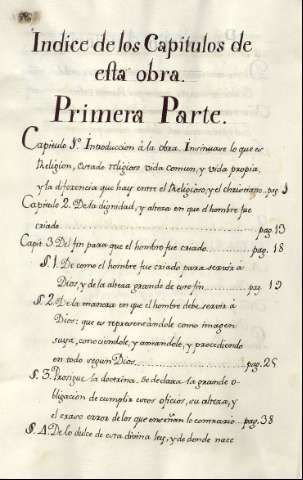 Indice de los Capitulos de
esta obra.
Primera Parte.
Capitulo 1º. Introduccion à la obra. Insinuase lo que es
Religion, estado religioso vida comun, y vida propia,
y la diferencia que hay entre el Religioso, y el christiano. pag. 1
Capitulo 2. De la dignidad, y alteza en que el hombre fue
criado. pag. 13
Capit. 3. Del fin para que el hombre fue criado. pag. 18
§. 1. De como el hombre fue criado para servir à
Dios, y de la alteza grande de este fin. pag. 19
§. 2. De la manera en que el hombre debe servir à
Dios: que es representandole como imagen
suya, conociendole, y amandole, y procediendo
en todo segun Dios. pag. 25
§. 3. Prosigue la doctrina. Se declara la grande o-
bligacion de cumplir estos oficios, su alteza, y
el craso error de los que enseñan lo contrario. pag. 38
§. 4. De lo dulce de esta divina ley, y de donde nace